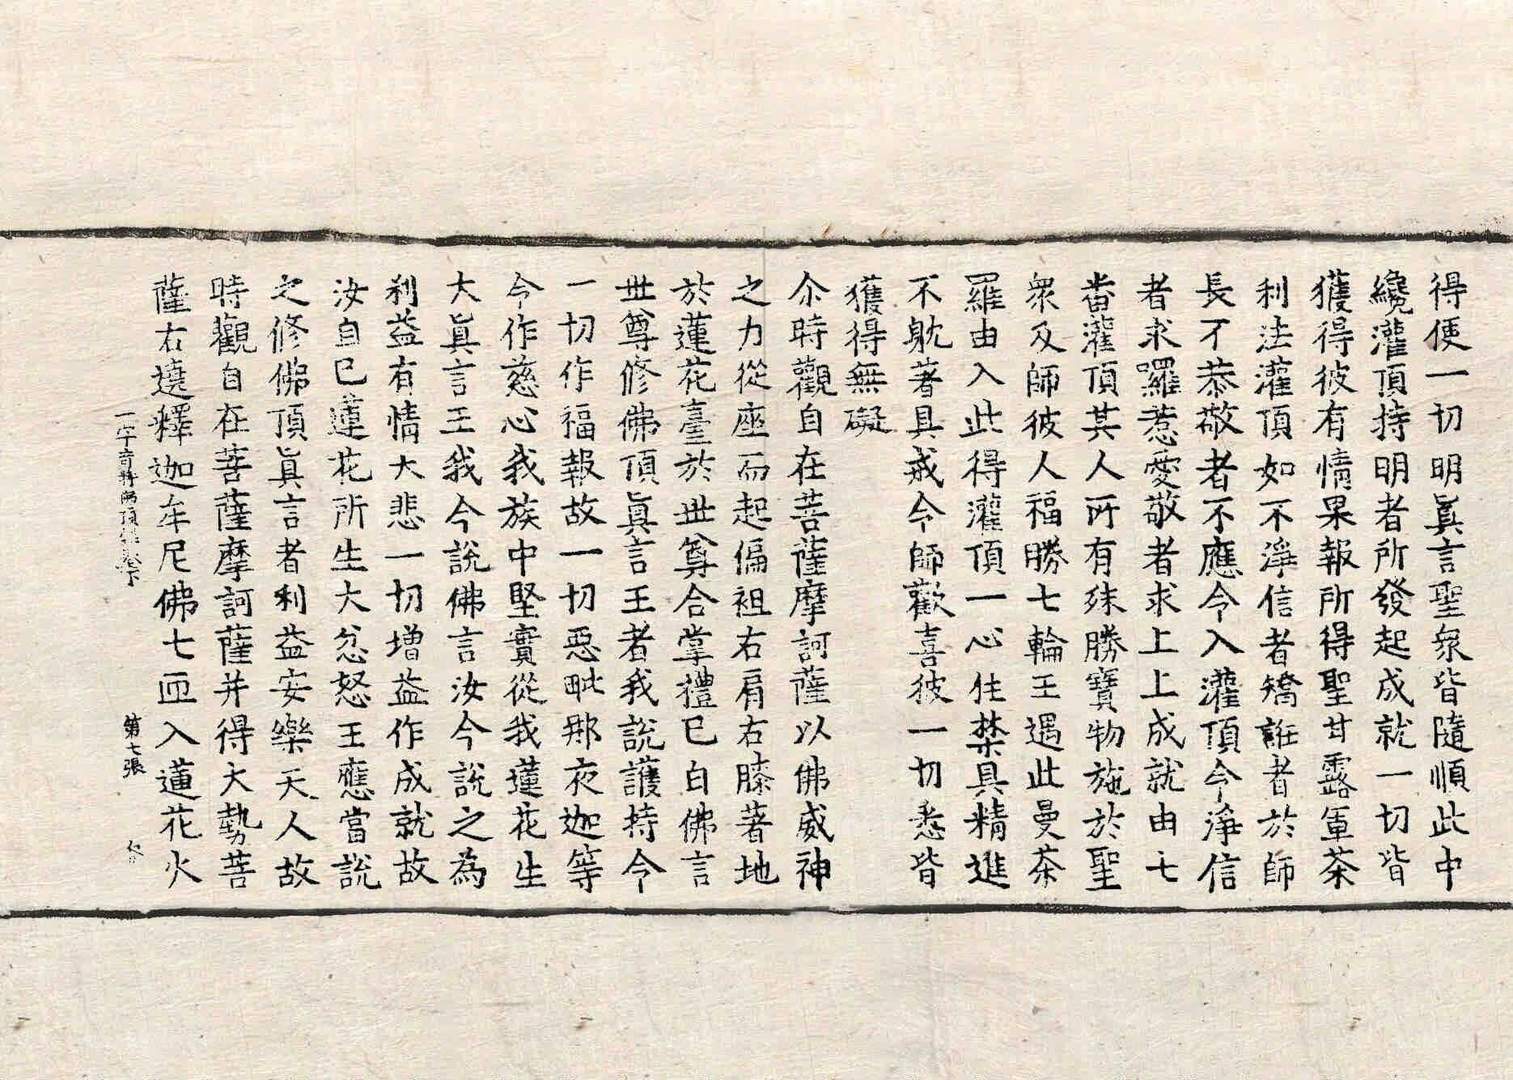 得便一切明眞言聖衆皆隨順此中
纔灌頂持明者所發起成就一切皆
獲得彼有情果報所得聖甘露軍茶
利法灌頂如不淨信者矯誑者於師
長不恭敬者不應令入灌頂令淨信
者求囉惹愛敬者求上上成就由七
畨灌頂其人所有殊勝寶物施於聖
衆及師彼人福勝七輪王遇此曼茶
羅由入此得灌頂一心住禁具精進
不躭著具戒令師歡喜彼一切悉皆
獲得無礙
尒時觀自在菩薩摩訶薩以佛威神
之力從座而起偏袒右肩右膝著地
於蓮花臺於世尊合掌禮已白佛言
世尊修佛頂眞言王者我說護持令
一切作福報故一切惡毗那夜迦等
令作慈心我族中堅實從我蓮花生
大眞言王我今說佛言汝今說之為
利益有情大悲一切增益作成就故
汝自已蓮花所生大忿怒王應當說
之修佛頂眞言者利益安樂天人故
時觀自在菩薩摩訶薩并得大勢菩
薩右遶釋迦牟尼佛七匝入蓮花火
一字奇特佛頂經卷下 第七張